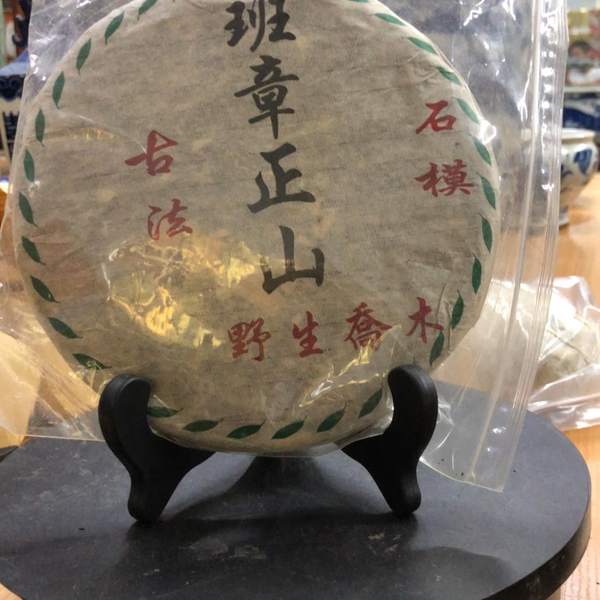 班章正山
石模
古法
野生喬木